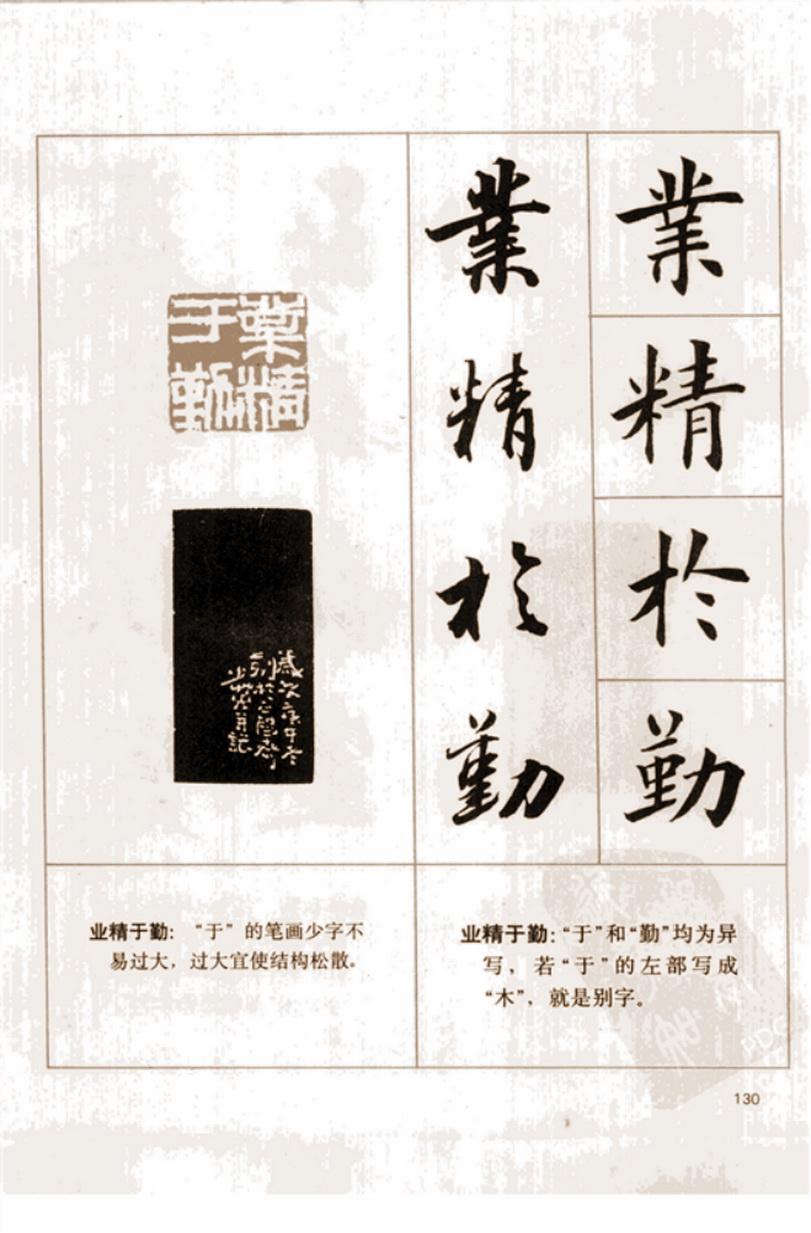 業精於勤
業精於勤
業精于勤
业精于勤：“于”的笔画少字不
易过大，过大宜使结构松散。
业精于勤：“于”和“勤”均为异
写，若“于”的左部写成
“木”，就是别字。
130